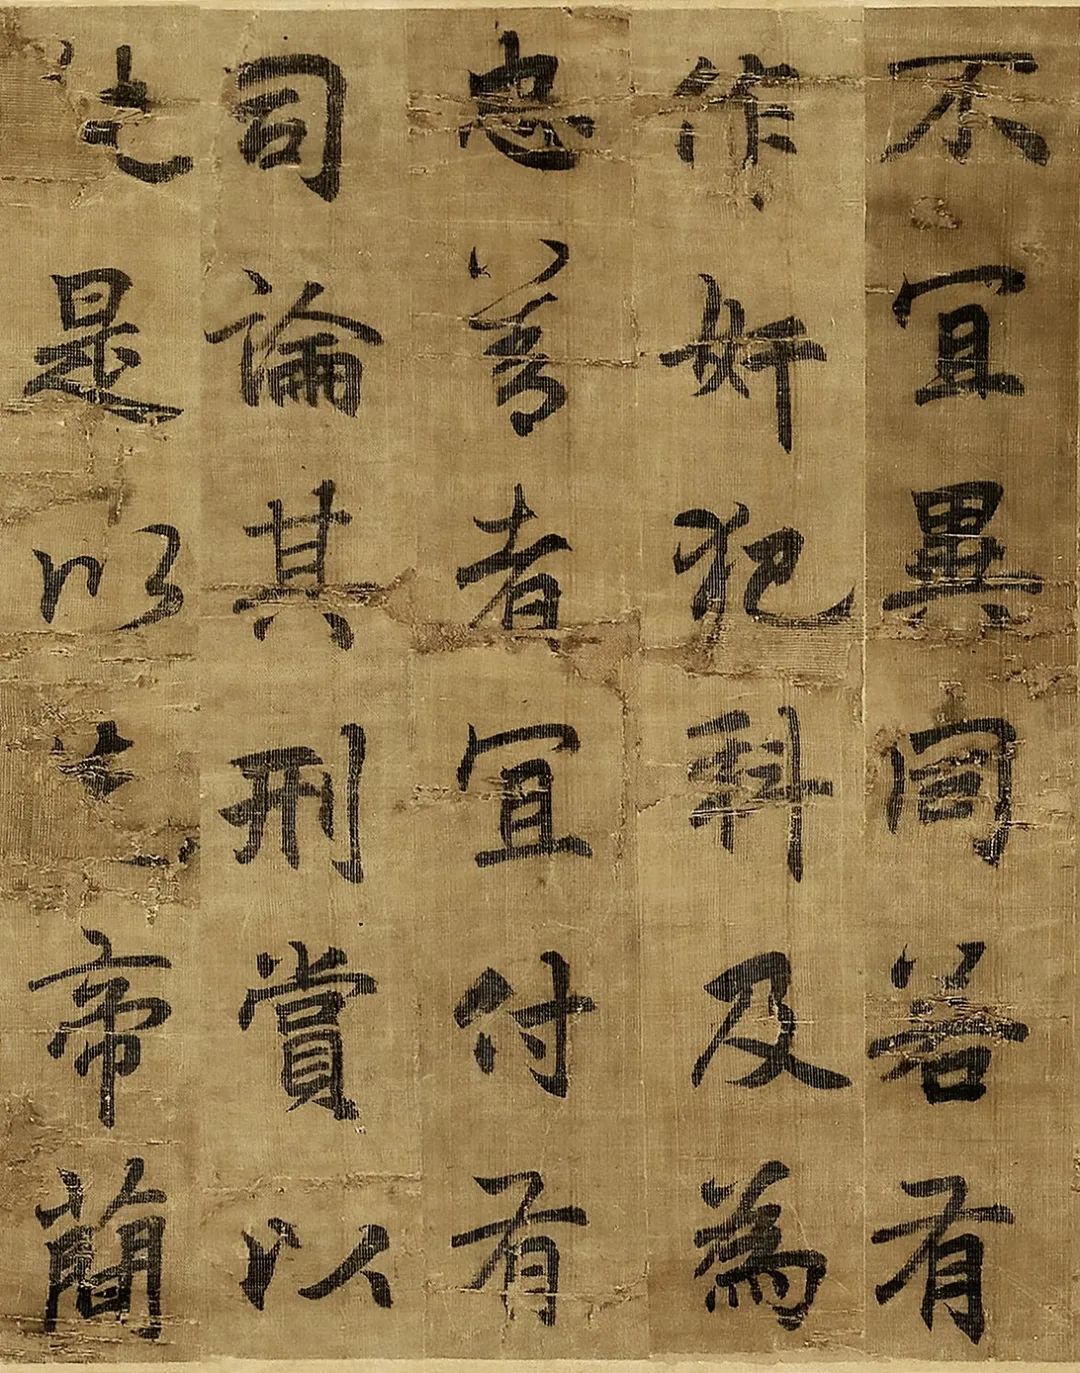 不宜異同若有
作奸犯科及為
忠善者宜付有
司論其刑賞以
是以先帝簡